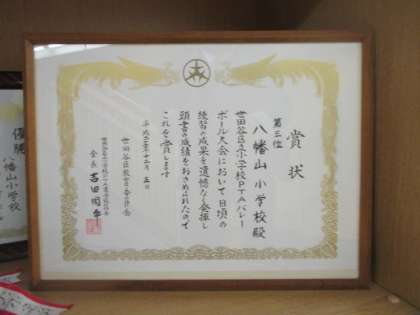 賞状
第三位
八幡山小学校殿
世田谷区立小学校PTAバレー
ボール大会において日頃の
練習の成果を遺憾なく発揮し
頭書の成績をおさめられたので
これを賞します
平成二十年十二月五日
世田谷区教育委員会
会長
優勝
八幡山小学校